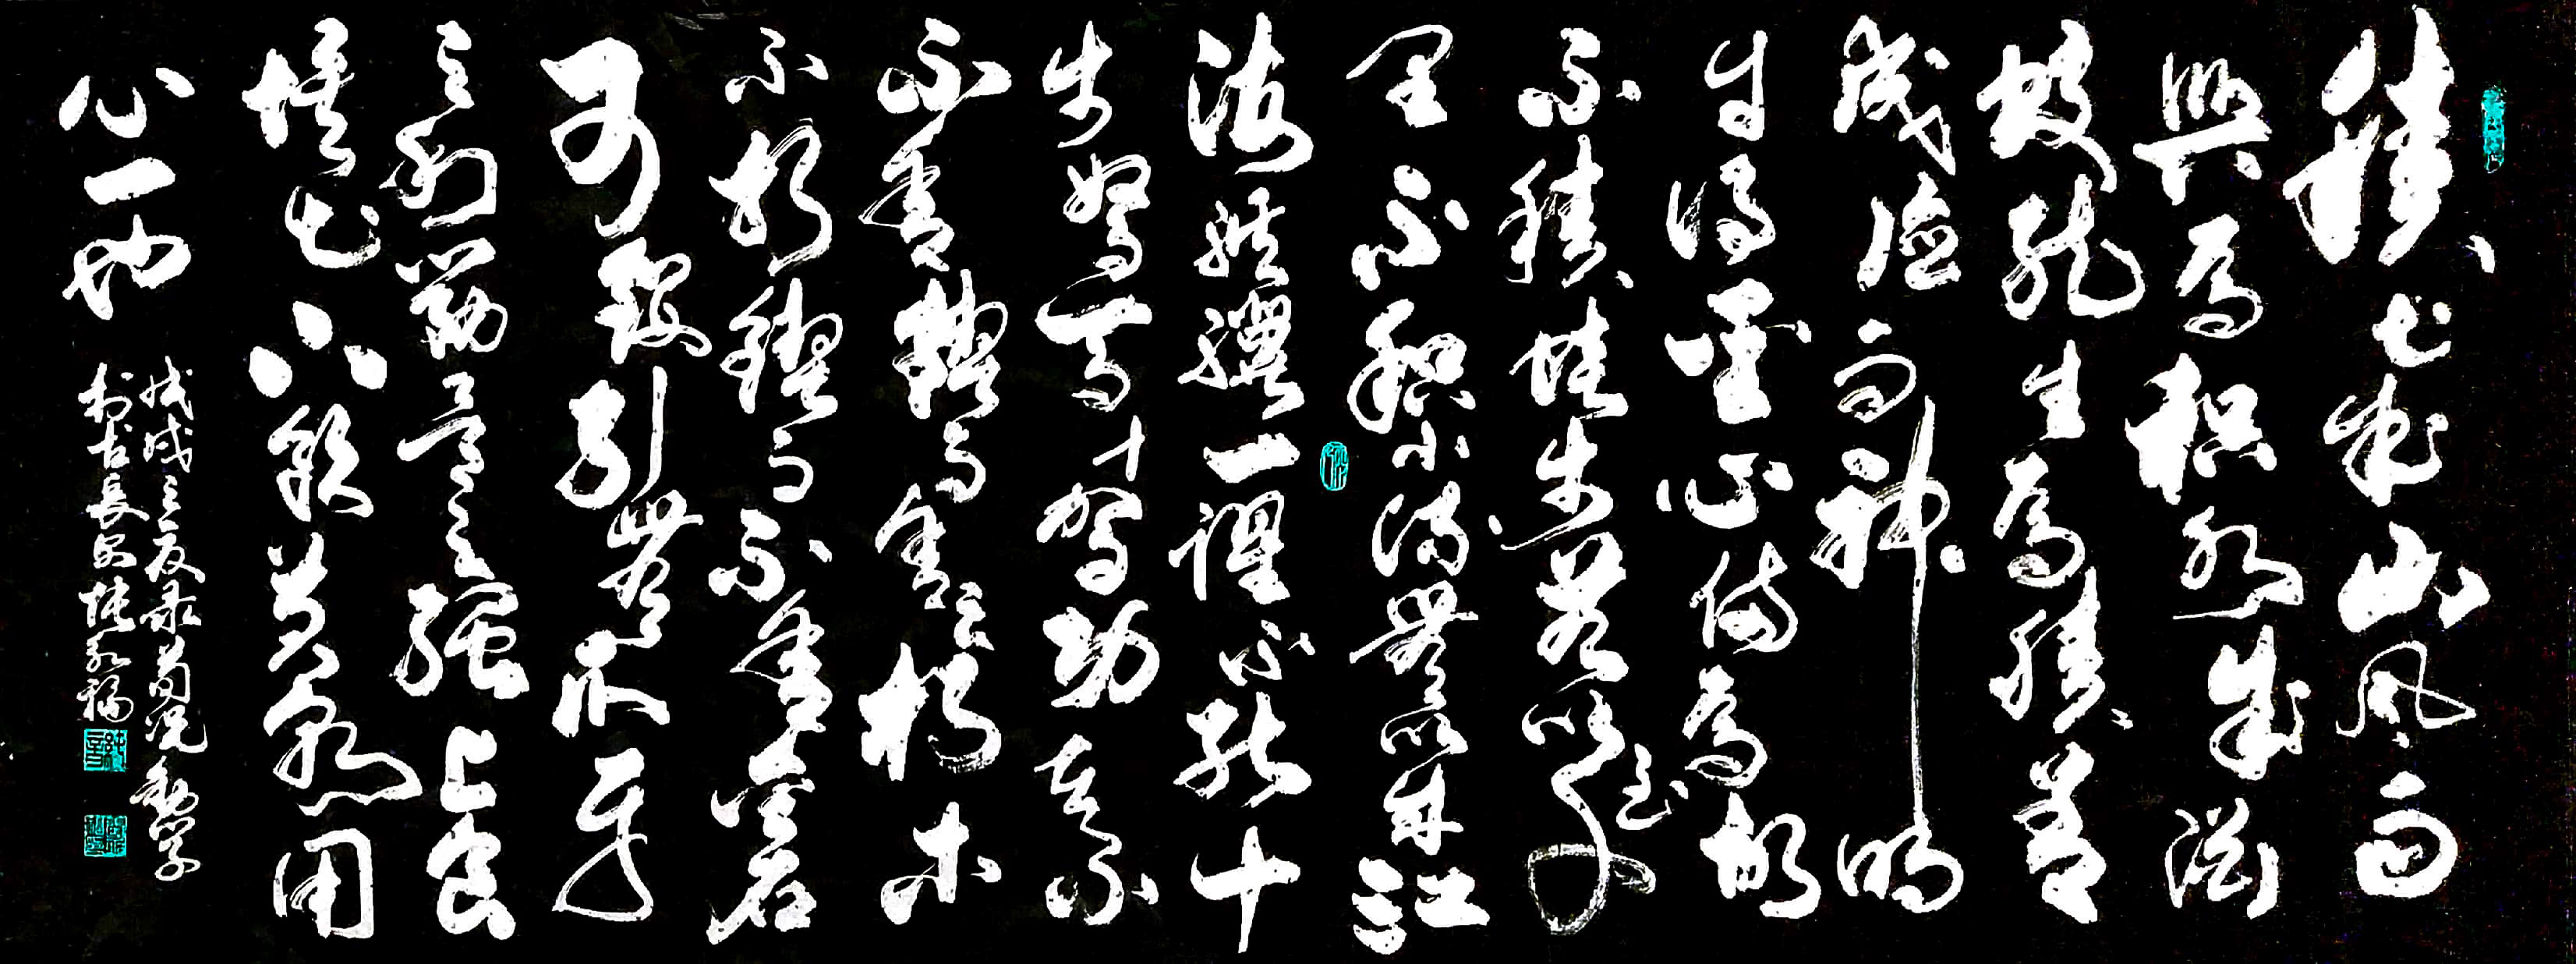 積土成山風雨
興焉積水成淵
蛟龍生焉積善
成德而神明
自得聖心備焉故
不積蹞步無以至千
里不積小流無以成江
海騏驥一躍不能十
步駑馬十駕功在不
不舍鍥而舍之朽木
不折鍥而不舍金石
可鏤蚓無爪牙
之利筋骨之強上食
埃土下飲黃泉用
心一也
戊戌之夏录荀况勸学
於古長安張永福